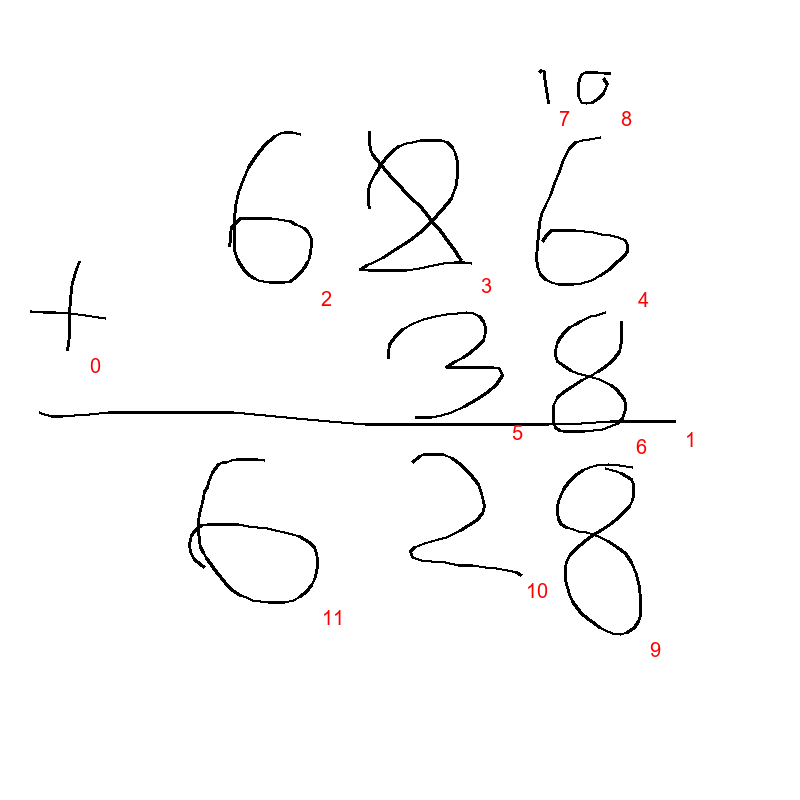 10
7 8
6 2 6
2 3 4
+ 3 8
0
5 6 1
6 2 8
11 10 9